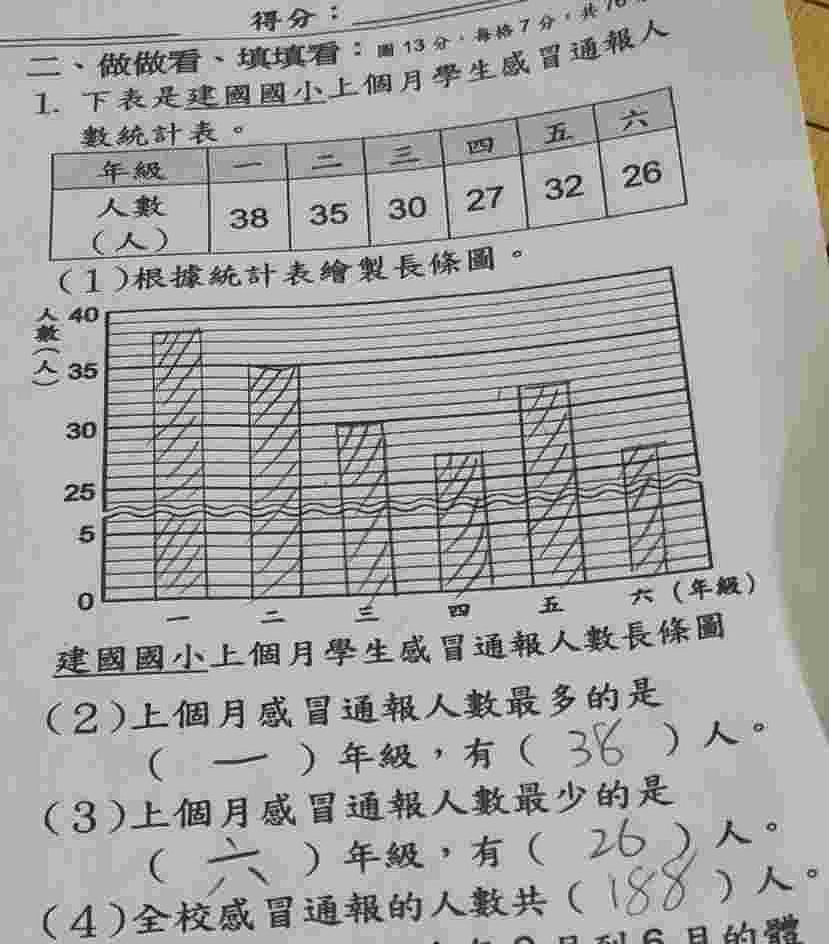 得分：
二、做做看、填填看：圖13分，每格7分，共
1. 下表是建國國小上個月學生感冒通報人
數統計表。
年級 一 二 三 四 五 六
人數（人） 38 35 30 27 32 26
（1）根據統計表繪製長條圖。
人數（人）
40
35
30
25
5
0
一 二 三 四 五 六（年級）
建國國小上個月學生感冒通報人數長條圖
（2）上個月感冒通報人數最多的是
（一）年級，有（38）人。
（3）上個月感冒通報人數最少的是
（六）年級，有（26）人。
（4）全校感冒通報的人數共（188）人。
月到6月的體